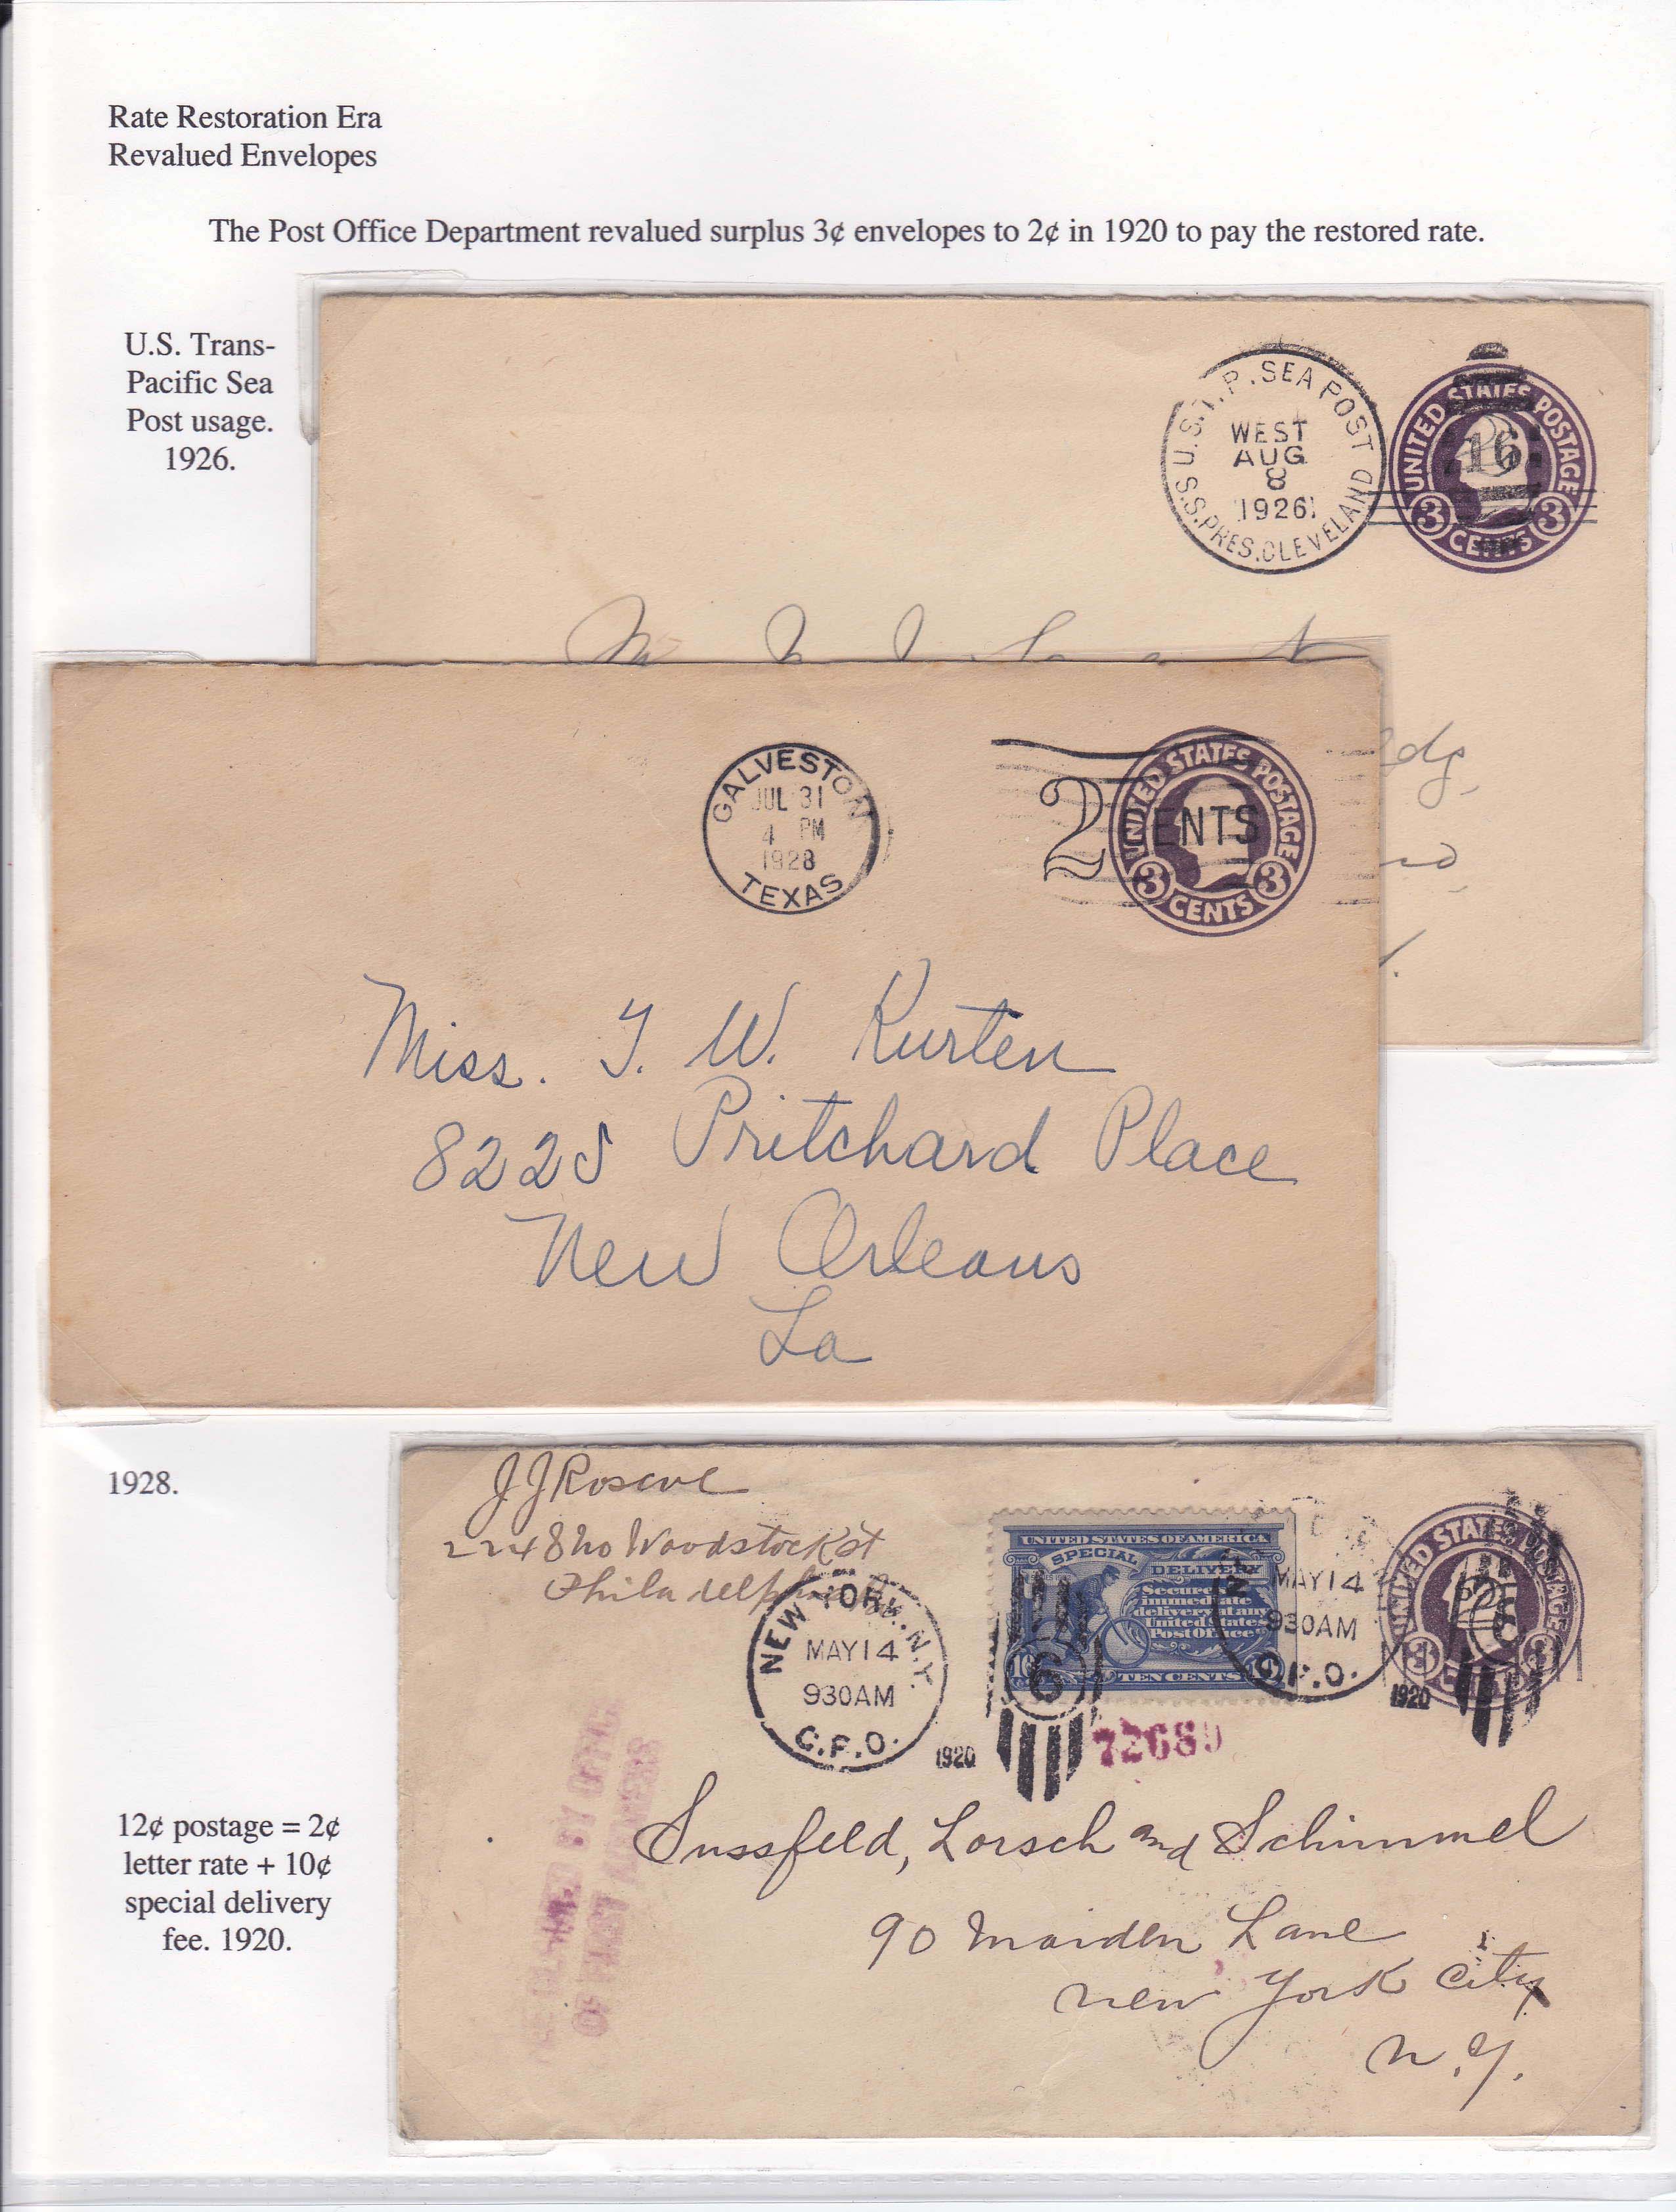 Rate Restoration Era
Revalued Envelopes
The Post Office Department revalued surplus 3¢ envelopes to 2¢ in 1920 to pay the restored rate.
U.S. Trans-
Pacific Sea
Post usage.
1926.
U.S.T.P. SEA POST
WEST
AUG
8
1926
S.S. PRES. CLEVELAND
UNITED STATES POSTAGE
16
3 3
CENTS
GALVESTON
JUL 31
4 PM
1928
TEXAS
UNITED STATES POSTAGE
2 CENTS
3 3
CENTS
Miss. T. W. Kurten
8225 Pritchard Place
New Orleans
La
1928.
J J Roscoe
2248 no Woodstock st
Philadelphia
NEW YORK, N.Y.
MAY 14
930AM
G.P.O.
1920
UNITED STATES OF AMERICA
SPECIAL DELIVERY
Secures
immediate
delivery at any
United States
Post Office
TEN CENTS
6
MAY 14
930AM
G.P.O.
1920
UNITED STATES POSTAGE
2
3 3
72689
12¢ postage = 2¢
letter rate + 10¢
special delivery
fee. 1920.
Sussfeld, Lorsch and Schimmel
90 Maiden Lane
New York City
N.Y.